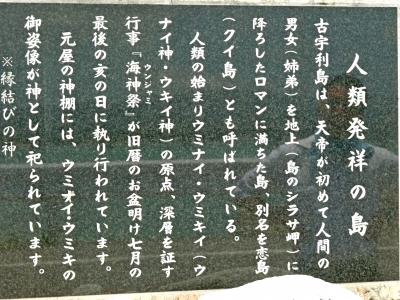 人類発祥の島
古宇利島は、天帝が初めて人間の
男女（姉弟）を地上（島のシラサ岬）に
降ろしたロマンに満ちた島 別名を恋島
（クイ島）とも呼ばれている。
人類の始まりウミナイ・ウミキイ（ウ
ナイ神・ウキイ神）の原点、深層を証す
行事『海神祭』が旧暦のお盆明け七月の
ウンジャミ
最後の亥の日に執り行われています。
元屋の神棚には、ウミナイ・ウミキの
御姿像が神として祀られています。
※縁結びの神